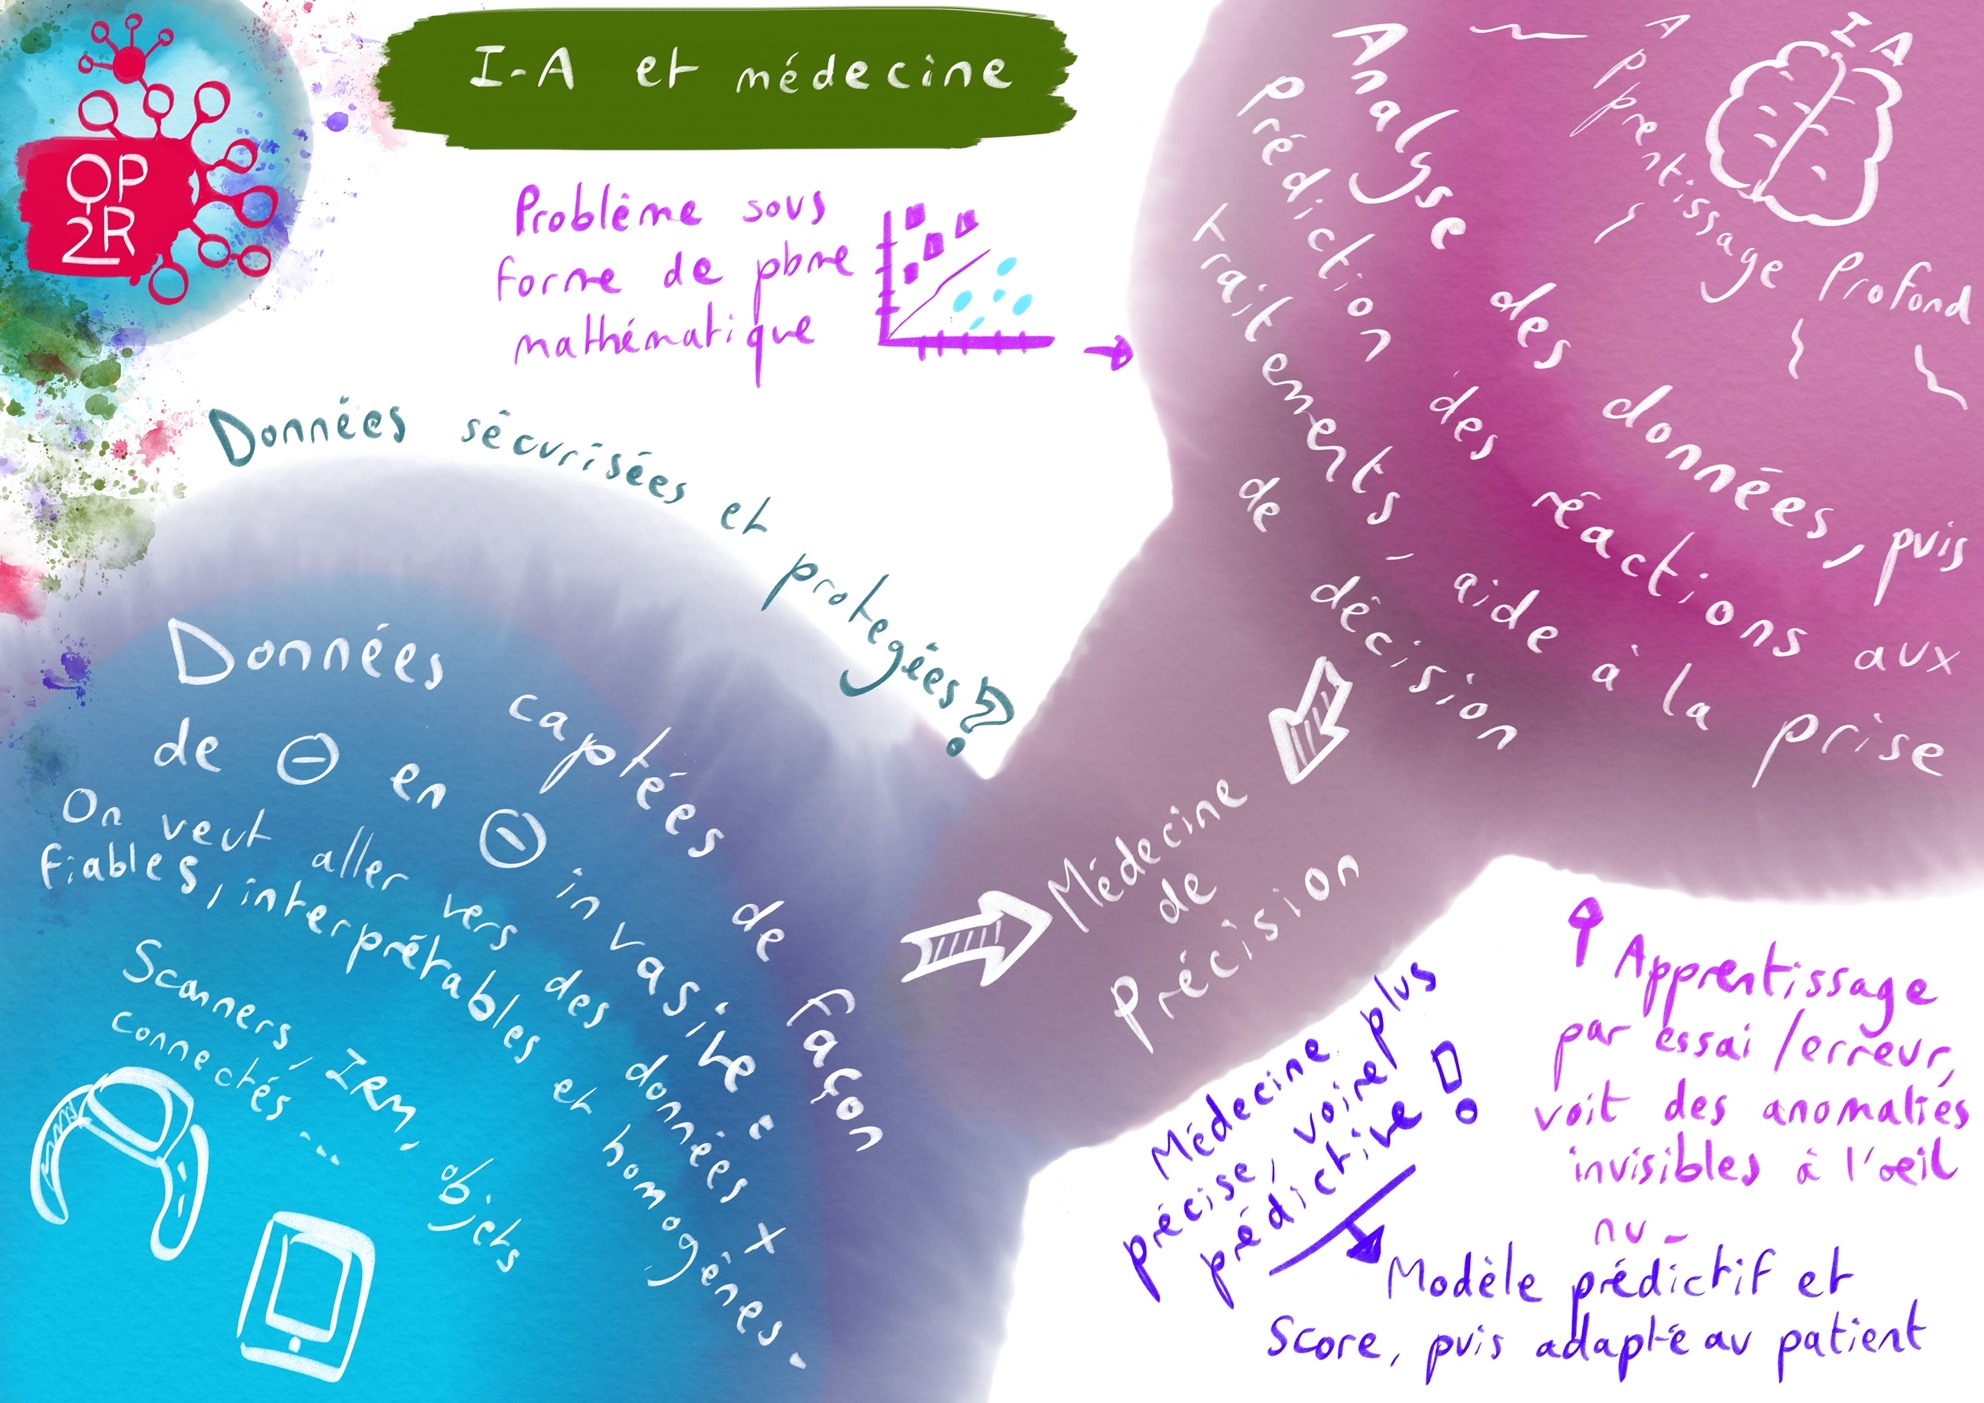 OP
2R
I-A et médecine
Problème sous
forme de pbme
mathématique
IA
Apprentissage Profond
Analyse des données, puis
Prédiction des réactions aux
Traitements, aide à la prise
de décision
Données sécurisées et protegées ?
Données captées de façon
de ⊖ en ⊖ invasive :
On veut aller vers des données +
fiables, interprétables et homogènes.
Scanners, IRM, objets
connectés ...
Médecine
de
Précision
Médecine plus
précise, voire
prédictive !
Modèle prédictif et
Score, puis adapté au patient
Apprentissage
par essai / erreur,
voit des anomalies
invisibles à l'oeil
nu -